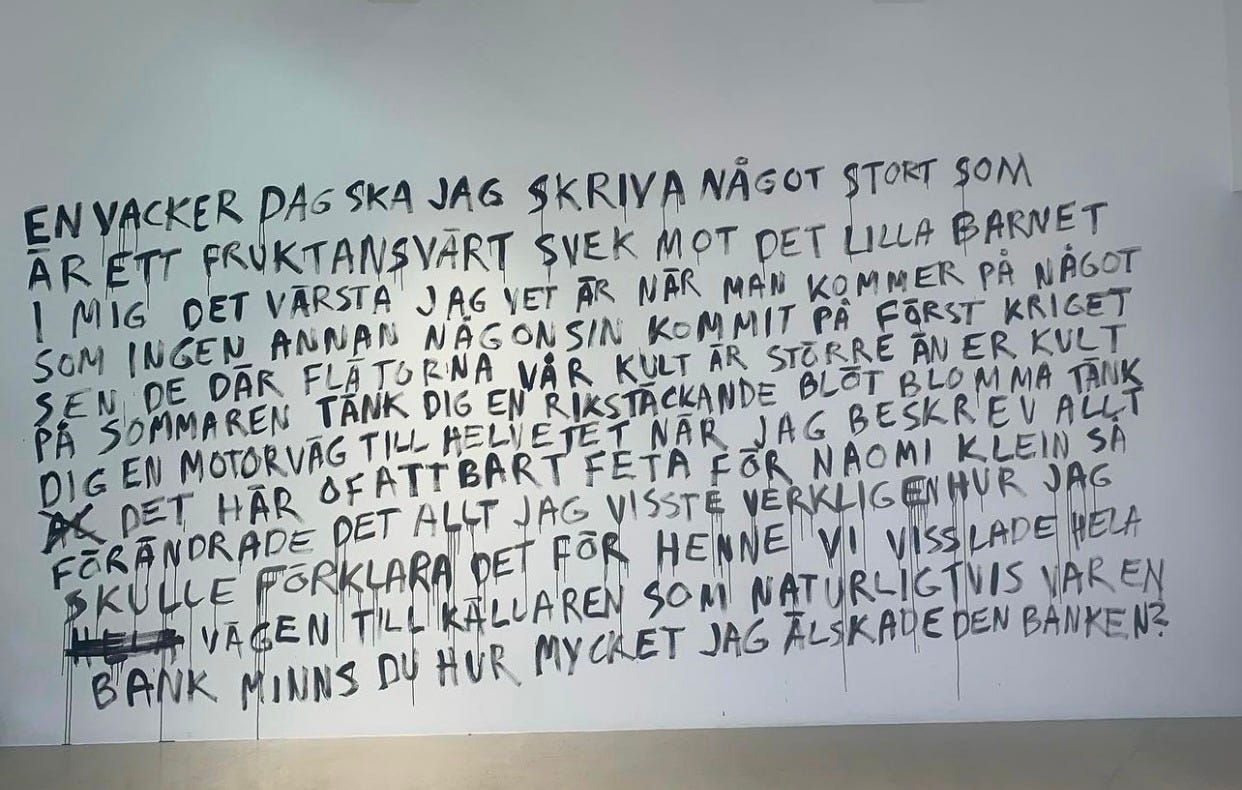 EN VACKER DAG SKA JAG SKRIVA NÅGOT STORT SOM
ÄR ETT FRUKTANSVÄRT SVEK MOT DET LILLA BARNET
I MIG DET VÄRSTA JAG VET ÄR NÄR MAN KOMMER PÅ NÅGOT
SOM INGEN ANNAN NÅGONSIN KOMMIT PÅ FÖRST KRIGET
SEN DE DÄR FLÄTORNA VÅR KULT ÄR STÖRRE ÄN ER KULT
PÅ SOMMAREN TÄNK DIG EN RIKSTÄCKANDE BLÖT BLOMMA TÄNK
DIG EN MOTORVÄG TILL HELVETET NÄR JAG BESKREV ALLT
DET HÄR OFATTBART FETA FÖR NAOMI KLEIN SÅ
FÖRÄNDRADE DET ALLT JAG VISSTE VERKLIGEN HUR JAG
SKULLE FÖRKLARA DET FÖR HENNE VI VISSLADE HELA
HELA VÄGEN TILL KÄLLAREN SOM NATURLIGTVIS VAR EN
BANK MINNS DU HUR MYCKET JAG ÄLSKADE DEN BANKEN?